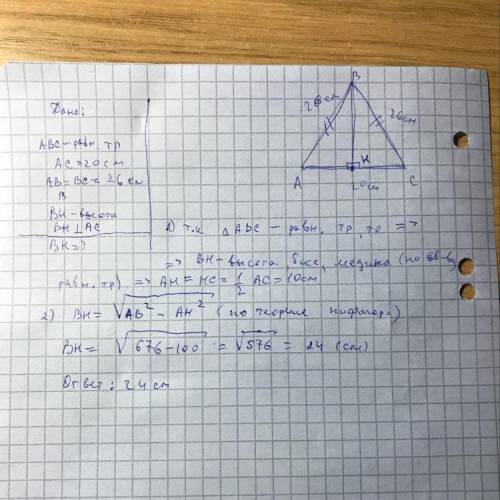 Дано:
ABC - равн. тр
AC = 20 см
AB = BC = 26 см
B
BH - высота
BH ⊥ AC
BH = ?
B
26 см
26 см
H
A
20 см
C
1) т.к △ABC - равн. тр, то =>
=> BH - высота, бисс, медиана (по св-ву
равн. тр) => AH = HC = 1/2 AC = 10 см
2) BH = √AB² - AH² (по теореме пифагора)
BH = √676-100 = √576 = 24 (см)
Ответ: 24 см